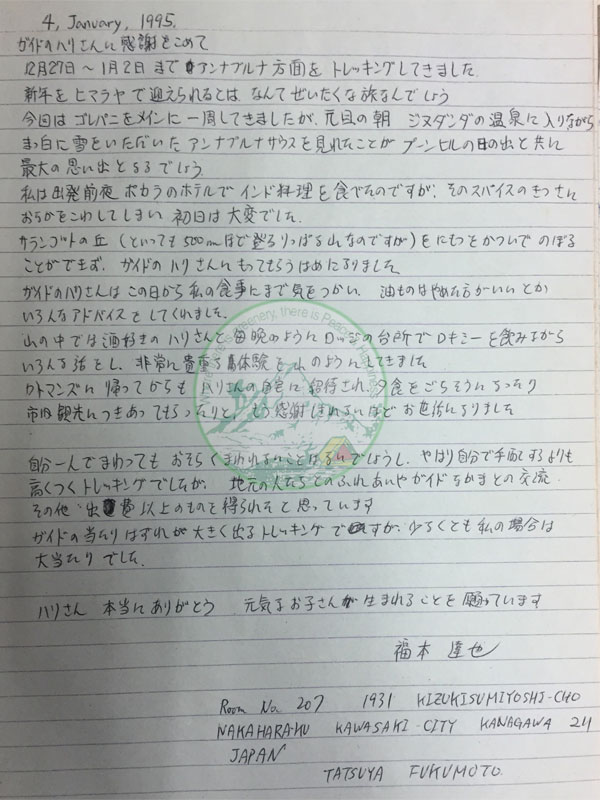 4, January, 1995.
ガイドのハリさんに感謝をこめて
12月27日〜1月2日までアンナプルナ方面をトレッキングしてきました
新年をヒマラヤで迎えられるとは なんてぜいたくな旅なんでしょう
今回はゴレパニをメインに一周してきましたが、元旦の朝 ジヌダンダの温泉に入りながら
まっ白に雪をいただいたアンナプルナサウスを見れたことが プーンヒルの日の出と共に
最大の思い出となるでしょう
私は出発前夜 ポカラのホテルでインド料理を食べたのですが、そのスパイスのきつさに
おなかをこわしてしまい 初日は大変でした。
サランゴットの丘 (といっても500mほど登るりっぱな山なのですが)をにもつをかついでのぼる
ことができず、ガイドのハリさんにもってもらうはめになりました
ガイドのハリさんはこの日から私の食事にまで気をつかい、油ものはやめた方がいいとか
いろんなアドバイスをしてくれました。
山の中では酒好きのハリさんと毎晩のようにロッジの台所でロキシーを飲みながら
いろんな話をし、非常に貴重な体験を山のようにしてきました
カトマンズに帰ってからもハリさんの自宅に招待され、夕食をごちそうになったり
市内観光につきあってもらったりと、もう感謝しきれないほどお世話になりました
自分一人でまわってもおそらくまわれないことはないでしょうし、やはり自分で手配するよりも
高くつくトレッキングでしたが、地元の人たちとのふれあいやガイドなかまとの交流
その他 出費以上のものを得られたと思っています
ガイドの当たりはずれが大きく出るトレッキングですが、少なくとも私の場合は
大当たりでした。
ハリさん 本当にありがとう 元気なお子さんが生まれることを願っています
福本 達也
Room No. 207 1931 KIZUKISUMIYOSHI-CHO
NAKAHARA-KU KAWASAKI-CITY KANAGAWA 211
JAPAN
TATSUYA FUKUMOTO.